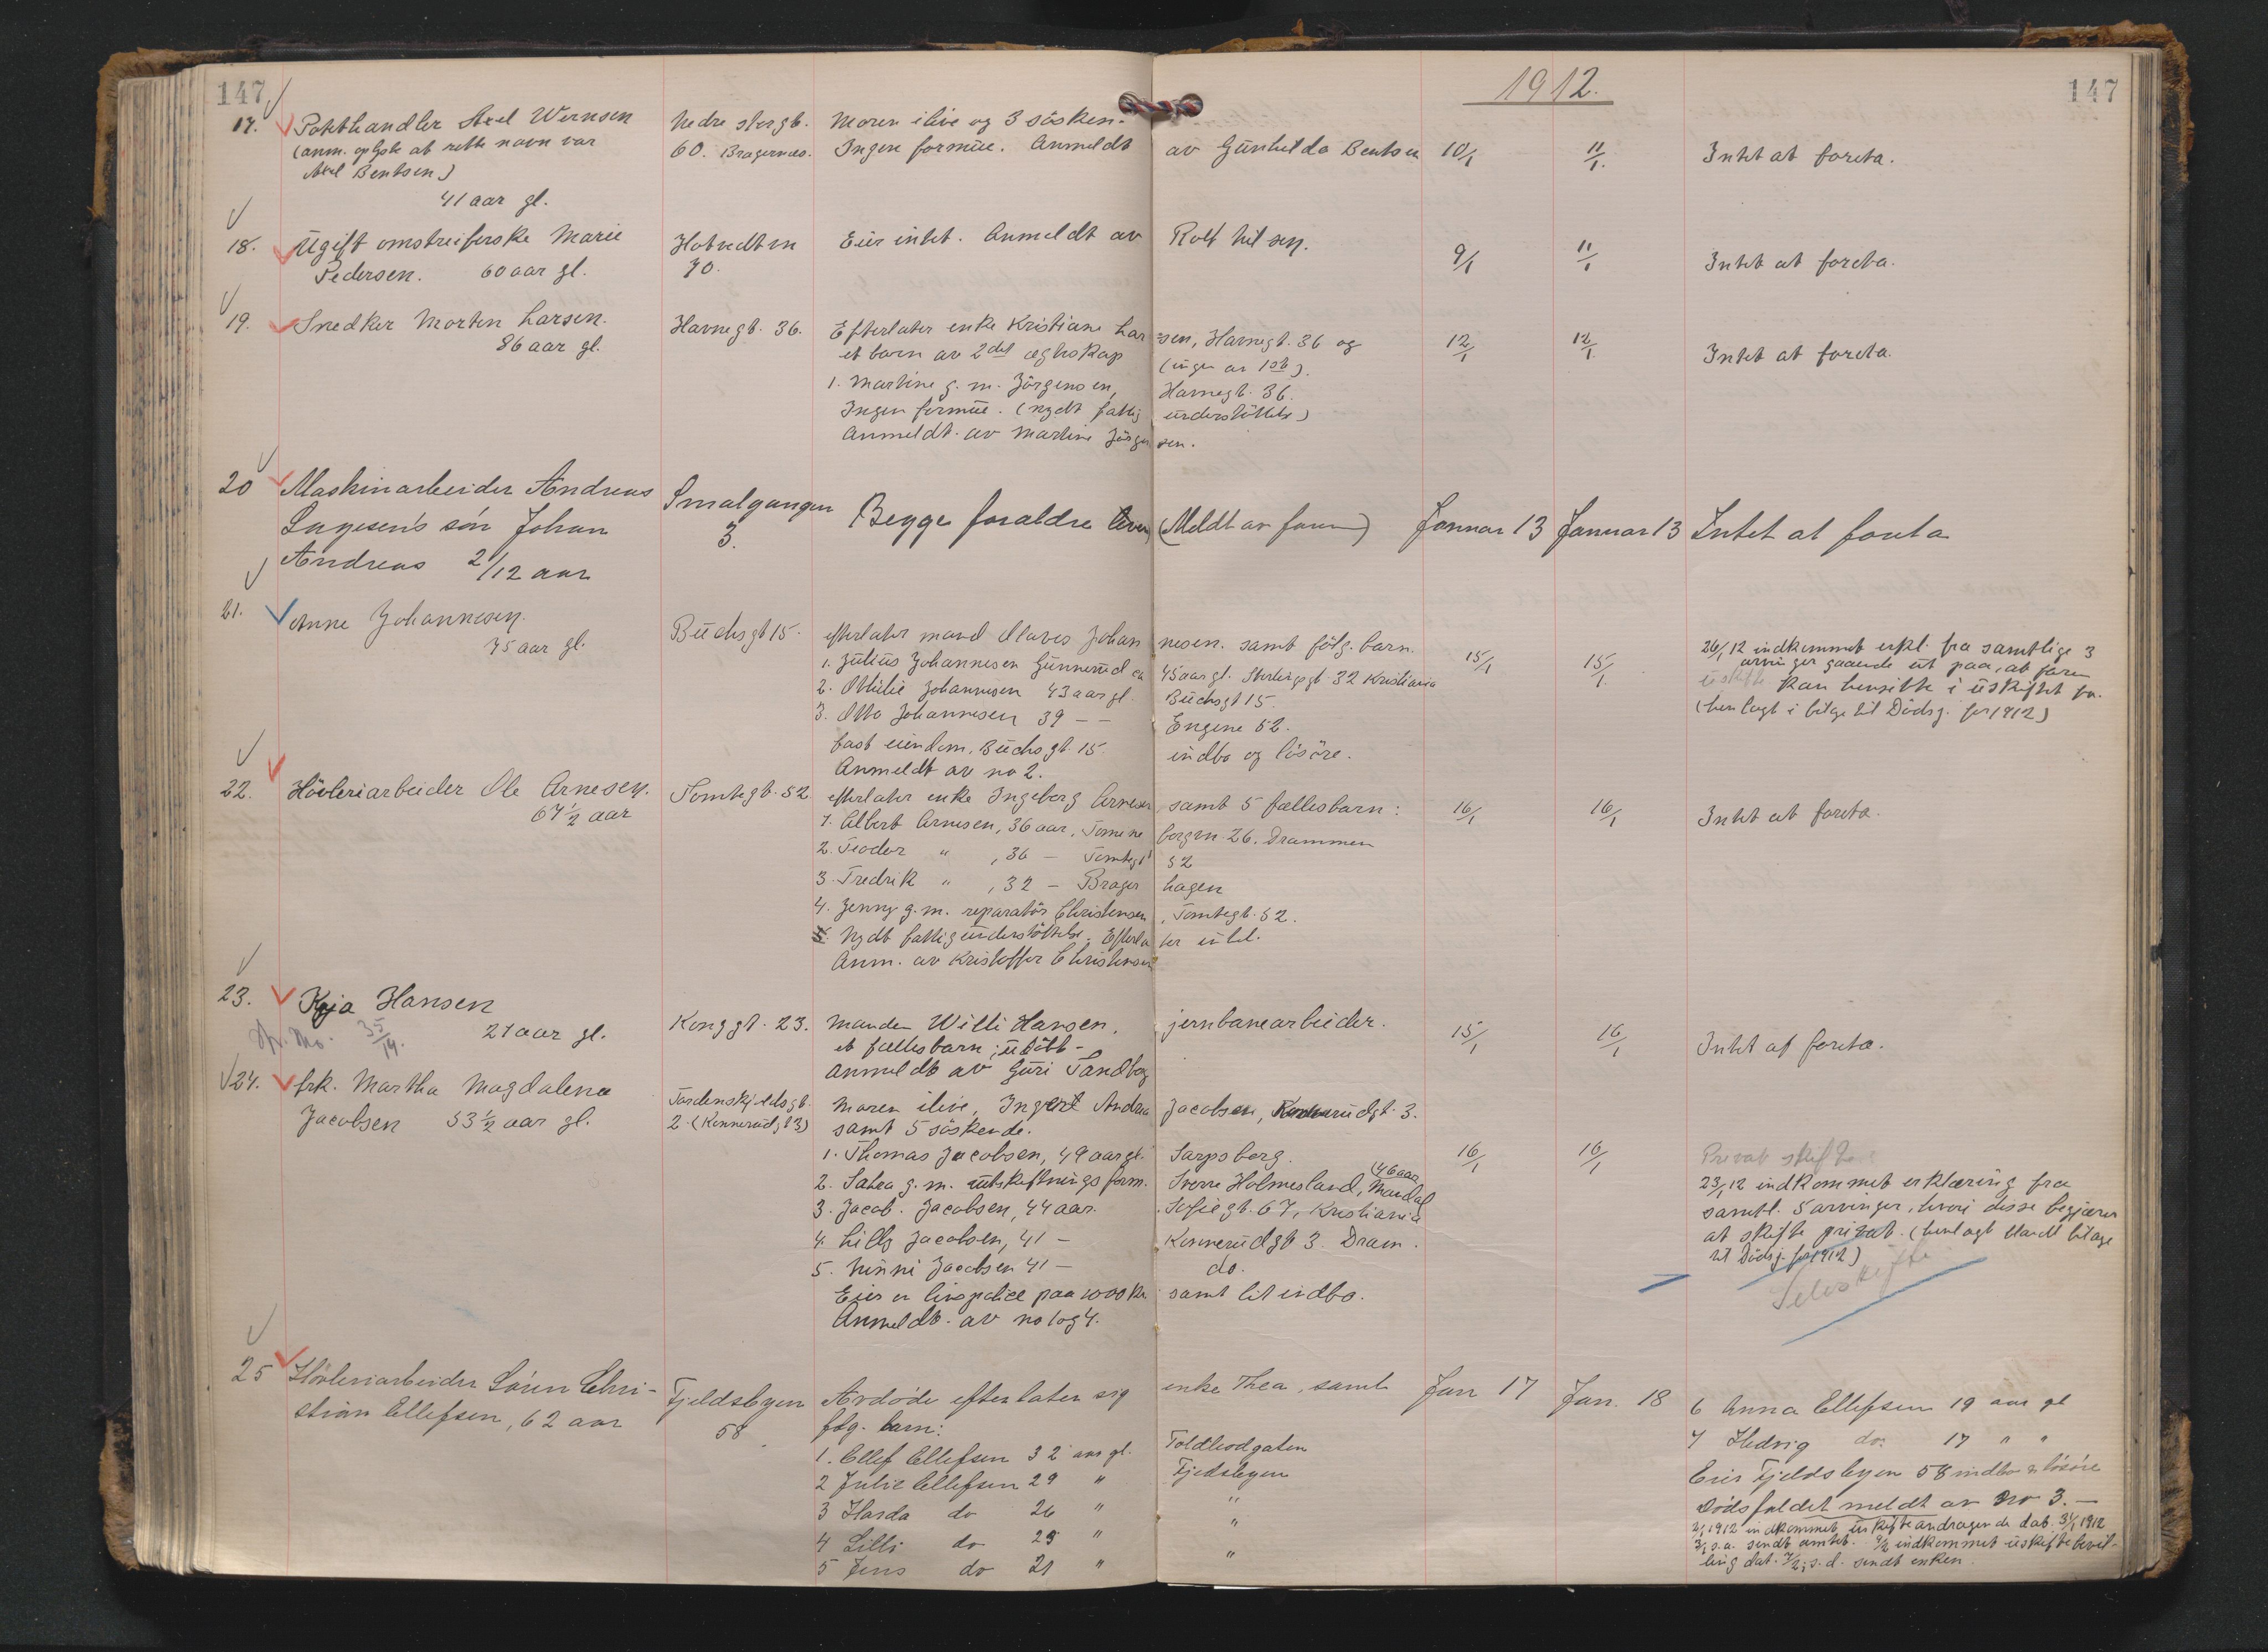 147
1912.
147
17. Pokthandler Axel Wernsen Nedre storgt. Moren ilive og 3 søsken. av Günhilda Bentsen 10/1 11/1 Intet at foreta.
(anm. oplyste at rette navn var 60. Bragernæs. Ingen formüe. Anmeldt
Axel Bentsen)
41 aar gl.
18. Ügift omstreiferske Marie Hotvedtvn Eier intet. Anmeldt av Rolf Nilsen. 9/1 11/1 Intet at foreta.
Pedersen. 60 aar gl. 70.
19. Snedker Morten Larsen. Havnegt. 36. Efterlater enke Kristiane Larsen, Havnegt. 36 og 12/1 12/1 Intet at foreta.
86 aar gl. et barn av 2det ægteskap (ingen av 1ste).
1. Martine g. m. Jörgensen, Havnegt. 36.
Ingen formüe. (nydt fattigünderstöttelse)
Anmeldt av Martine Jörgensen.
20 Maskinarbeider Andreas Smalgangen Begge foraldre lever (Meldt av faren) Januar 13 Januar 13 Intet at foreta
søn Johan 3.
Andreas 2/12 aar
21. Anne Johannesen. Büchsgt 15. efterlater mand Olaves Johannesen. samt følg. barn. 15/1 15/1 26/1 12 indkommet erkl. fra samtlige 3
75 aar gl. 1. Jülius Johannesen Günnerüd ca 45 aar gl. 32 Kristiania arvinger gaaende üt paa, at faren
2. Othilie Johannesen 43 aar gl. Büchsgt 15. kan hensitte i üskiftet bo.
3. Otto Johannesen 39 - - Engene 52. (henlagt i bilage til Dødsj. for 1912)
fast eiendom, Büchsgt. 15. indbo og løsøre.
Anmeldt av no 2.
22. Hövleriarbeider Ole Arnesen. Tomtegt. 52 efterlater enke Ingeborg Arnesen samt 5 fællesbarn: 16/1 16/1 Intet at foreta.
67½ aar 1. Albert Arnesen, 36 aar, Tomene bergvn. 26. Drammen
2. Teodor " , 36 - Tomtegt 52
3. Fredrik " , 32 - Bragerhagen
4. Jenny g. m. reparatör Christensen, Tomtegt. 52.
5. Nydt fattigünderstöttelse. Efterlater intet.
Anm. av Kristoffer Christensen
23. Kaja Hansen Konggt. 23. Manden Willi Hansen, jernbanearbeider. 15/1 16/1 Intet at foreta.
21 aar gl. et fællesbarn;
Anmeldt av Güri Sandberg
24. frk. Martha Magdalena Tordenskjoldsgt. Moren ilive, Andrea Jacobsen, Konnerüdgt. 3.
Jacobsen 53½ aar gl. 2 (Konnerüdgt 3) samt 5 söskende.
1. Thomas Jacobsen, 49 aar gl. Sarpsborg. 16/1 16/1 Privat skifte
2. g. m. ütskiftningsform. Sverre Holmesland, Mandal (46 aar) 23/1 12 indkommet erklæring fra
3. Jacob. Jacobsen, 44 aar. Sofiegt. 67, Kristiania samtl. 5 arvinger, hvori disse begjærer
4. Lilly Jacobsen, 41 - Konnerüdgt 3. Dram. at skifte privat. (henlagt blandt bilage
5. Ninni Jacobsen 41 - do. til Dødsj. for 1912)
Eier en livspolice paa 1000 Kr. samt lit indbo. Selvskifte
Anmeldt. av no 1 og 4.
25 Hövleriarbeider Søren Chri- Fjeldsbyen Avdøde efterlater sig enke Thea, samt Jan 17 Jan. 18 6 Anna Ellefsen 19 aar gl
stian Ellefsen, 62 aar 58 flg. barn: 7 Hedvig do. 17 " "
1. Ellef Ellefsen 32 aar gl. Toldbodgaten Eier Fjeldsbyen 58 indbo & løsøre
2 Julie Ellefsen 29 " Fjeldsbyen Dødsfaldet meldt av No 3. -
3 Harda do 26 " " 2/1 1912 indkommet üskifteandragende dat. 31/1 1912
4 Lilli do 23 " " 3/1 s.a. sendt amtet. 9/2 indkommet üskiftebevil-
5 Jens do 21 " " ling dat. 7/2; s. d. sendt enken.